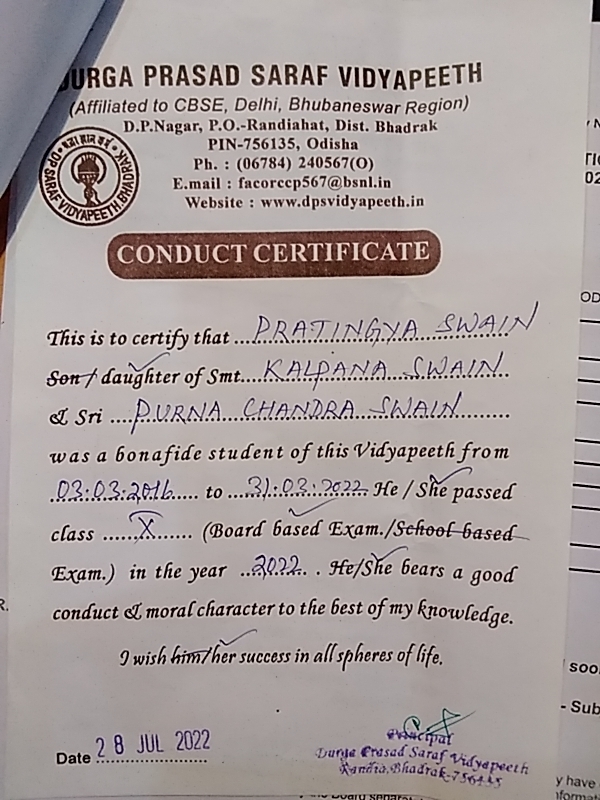 DURGA PRASAD SARAF VIDYAPEETH
(Affiliated to CBSE, Delhi, Bhubaneswar Region)
D.P.Nagar, P.O.-Randiahat, Dist. Bhadrak
PIN-756135, Odisha
Ph. : (06784) 240567(O)
E.mail : facorccp567@bsnl.in
Website : www.dpsvidyapeeth.in
DP SARAF VIDYAPEETH, BHADRAK
CONDUCT CERTIFICATE
This is to certify that ...PRATINGYA SWAIN
Son / daughter of Smt....KALPANA SWAIN..
& Sri ....PURNA CHANDRA SWAIN........
was a bonafide student of this Vidyapeeth from
03:03:2016..... to ...31:03:2022. He / She passed
class ......X...... (Board based Exam./School based
Exam.) in the year ..2022.. . He/She bears a good
conduct & moral character to the best of my knowledge.
I wish him/her success in all spheres of life.
Date 28 JUL 2022
Principal
Durga Prasad Saraf Vidyapeeth
Randia, Bhadrak-756135
soo
- Sub
y have